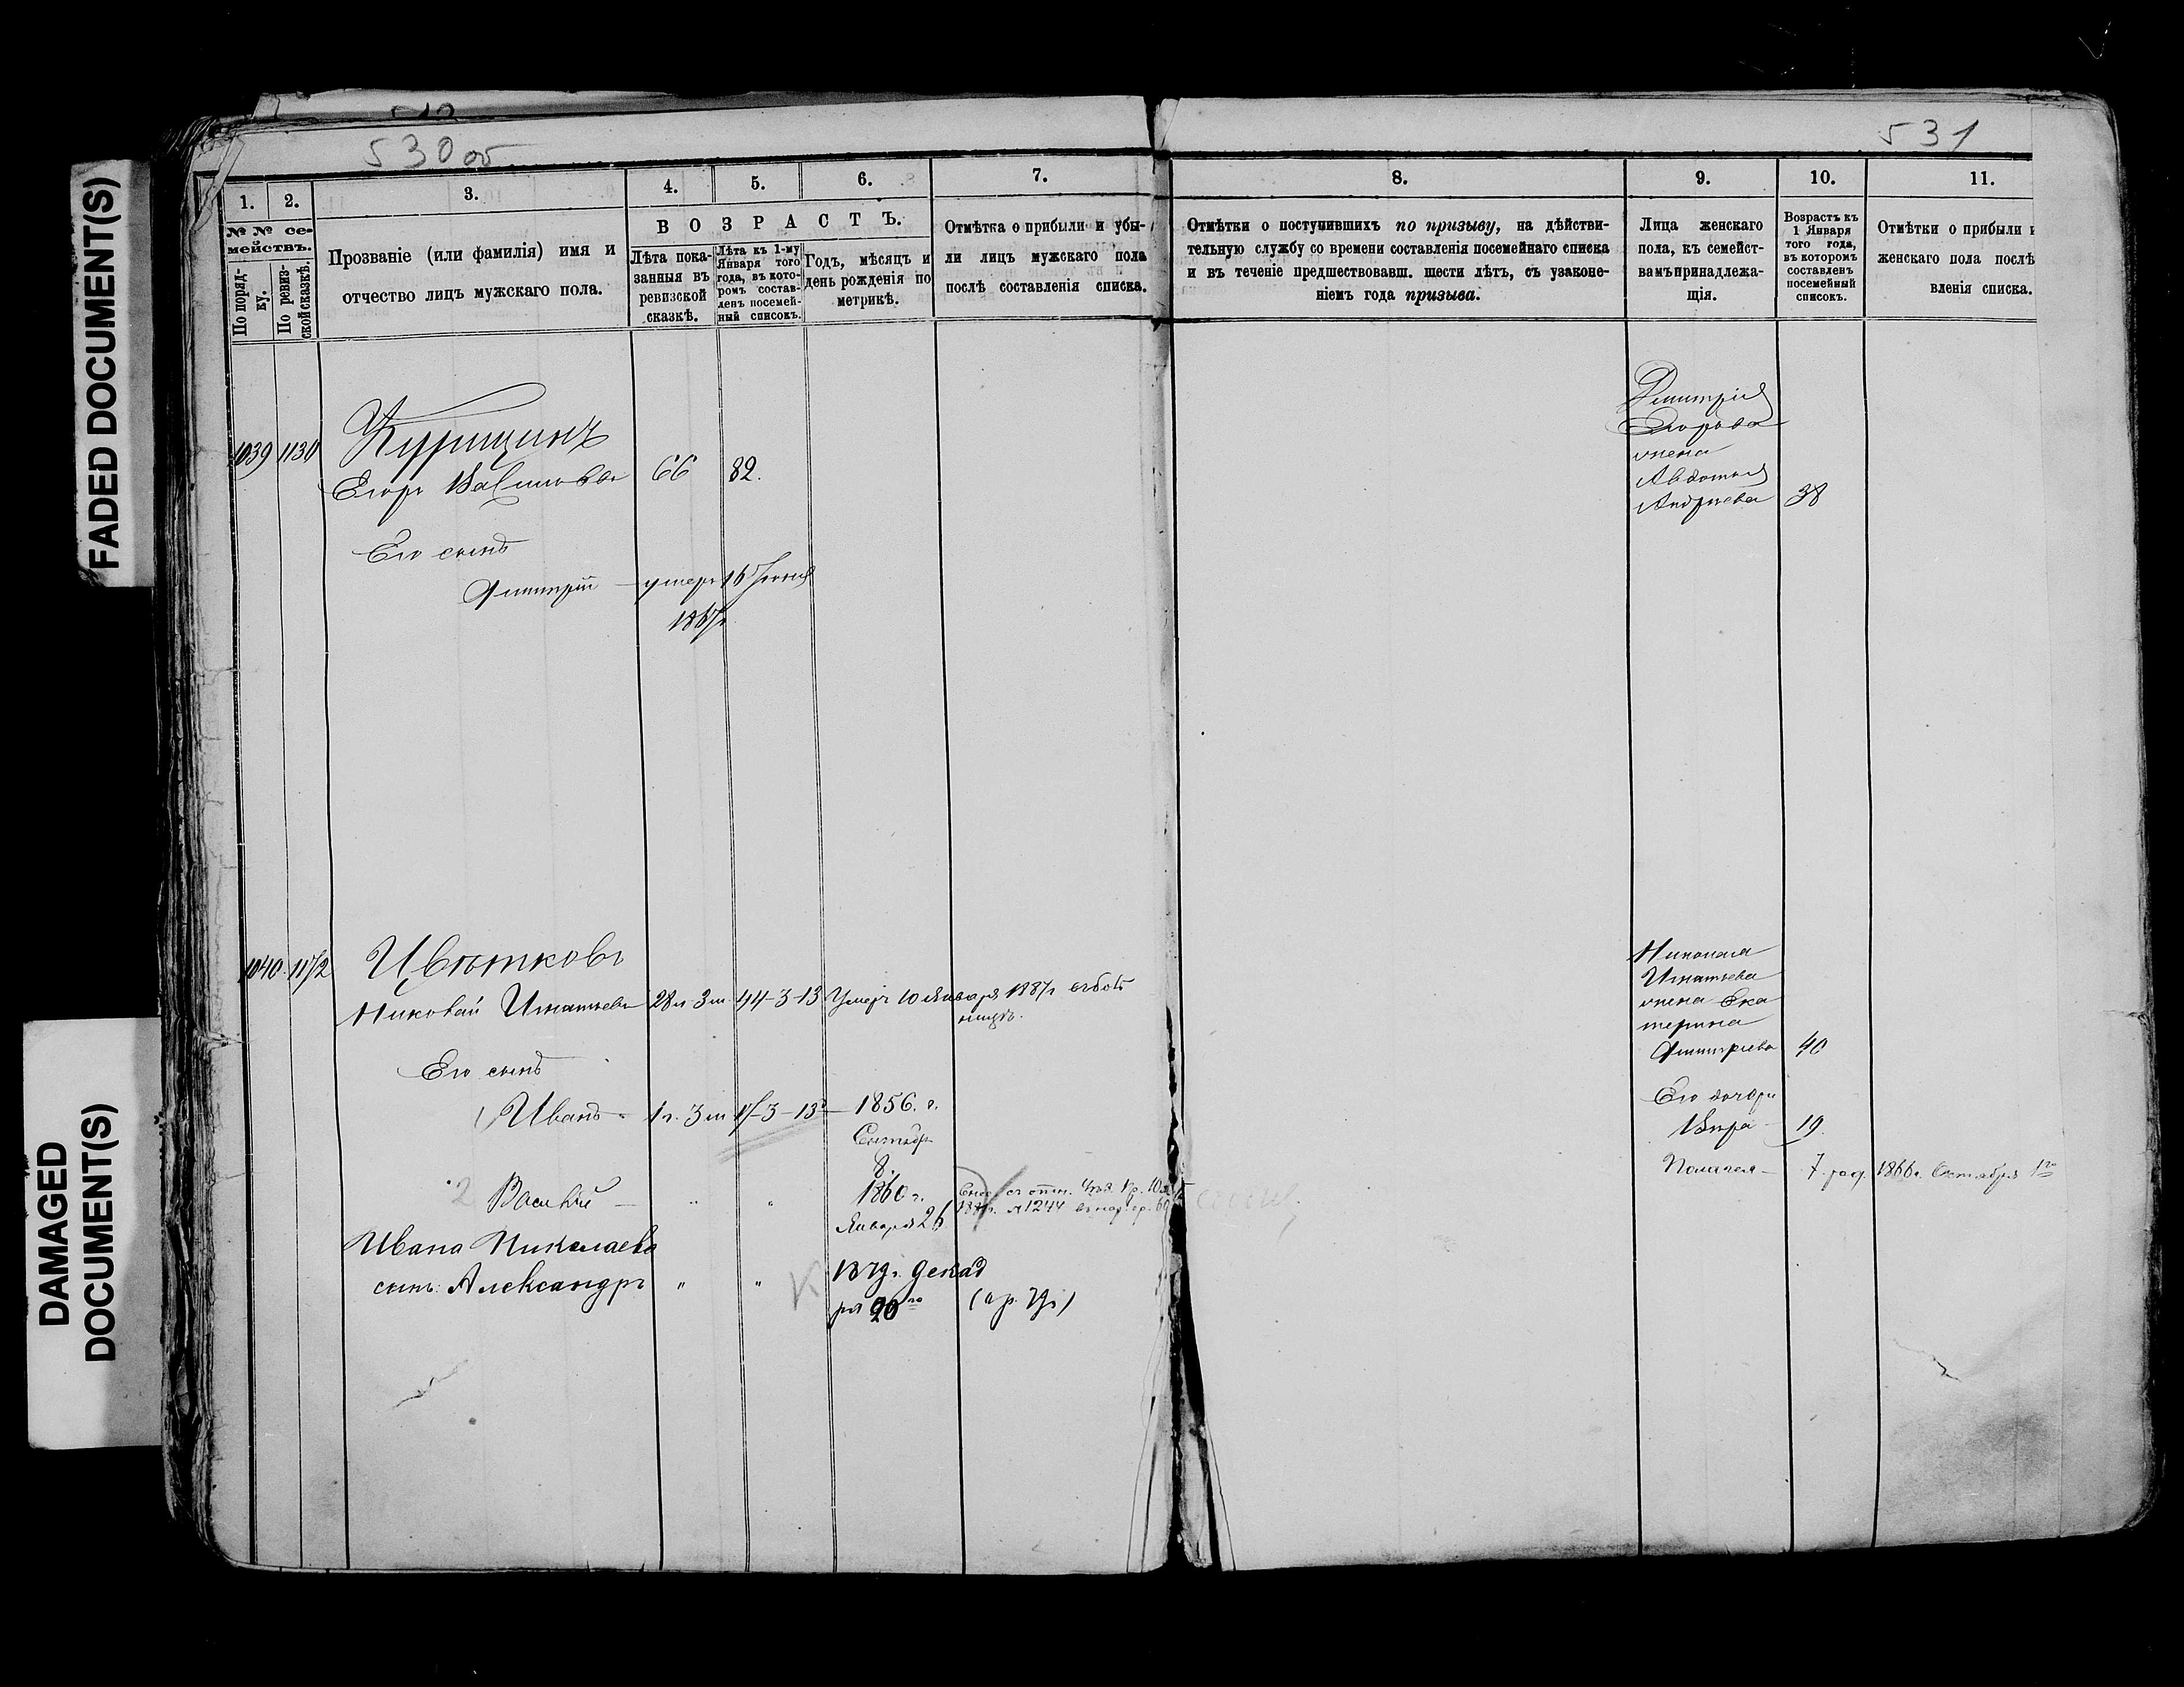 FADED DOCUMENT(S)
DAMAGED
DOCUMENT(S)
530 об
531
1.
2.
3.
4.
5.
6.
7.
8.
9.
10.
11.
№ № се-
мействъ.
По поряд-
ку.
По ревиз-
ской сказкѣ.
Прозваніе (или фамилія) имя и
отчество лицъ мужскаго пола.
ВОЗРАСТЪ.
Лѣта пока-
занныя въ
ревизской
сказкѣ.
Лѣта къ 1-му
Января того
года, въ кото-
ромъ состав-
ленъ посемей-
ный списокъ.
Годъ, мѣсяцъ и
день рожденія по
метрикѣ.
Отмѣтка о прибыли и убы-
ли лицъ мужскаго пола
послѣ составленія списка.
Отмѣтки о поступившихъ по призыву, на дѣйстви-
тельную службу со времени составленія посемейнаго списка
и въ теченіе предшествовавш. шести лѣтъ, съ узаконе-
ніемъ года призыва.
Лица женскаго
пола, къ семейст-
вамъ принадлежа-
щія.
Возрастъ къ
1 Января
того года,
въ которомъ
составленъ
посемейный
списокъ.
Отмѣтки о прибыли и
женскаго пола послѣ
вленія списка.
1039
Егоръ 66 82.
Его сынъ
Дмитрій — умеръ 16
Дмитрія
Егорова
жена
Авдотья
Андреева 38
1040
Цвѣтковъ
Николай Игнатьевъ 28 л 3 м 44-3-13 Умеръ 10 Января 1887 г
Его сынъ
1 Иванъ 1 г. 3 м 17-3-13 — 1856. г.
Сентябр
8.
2 Василій — " " 1860 г.
Января 26
№ 1244
Ивана Николаева
сынъ: Александръ " " 1879 г. декаб
ря 20 го
Николая
Игнатьева
жена Ека
терина
Дмитріева 40
Его дочери
Вѣра — 19
Пелагея — 7 год. 1866 г. Октября 1 го